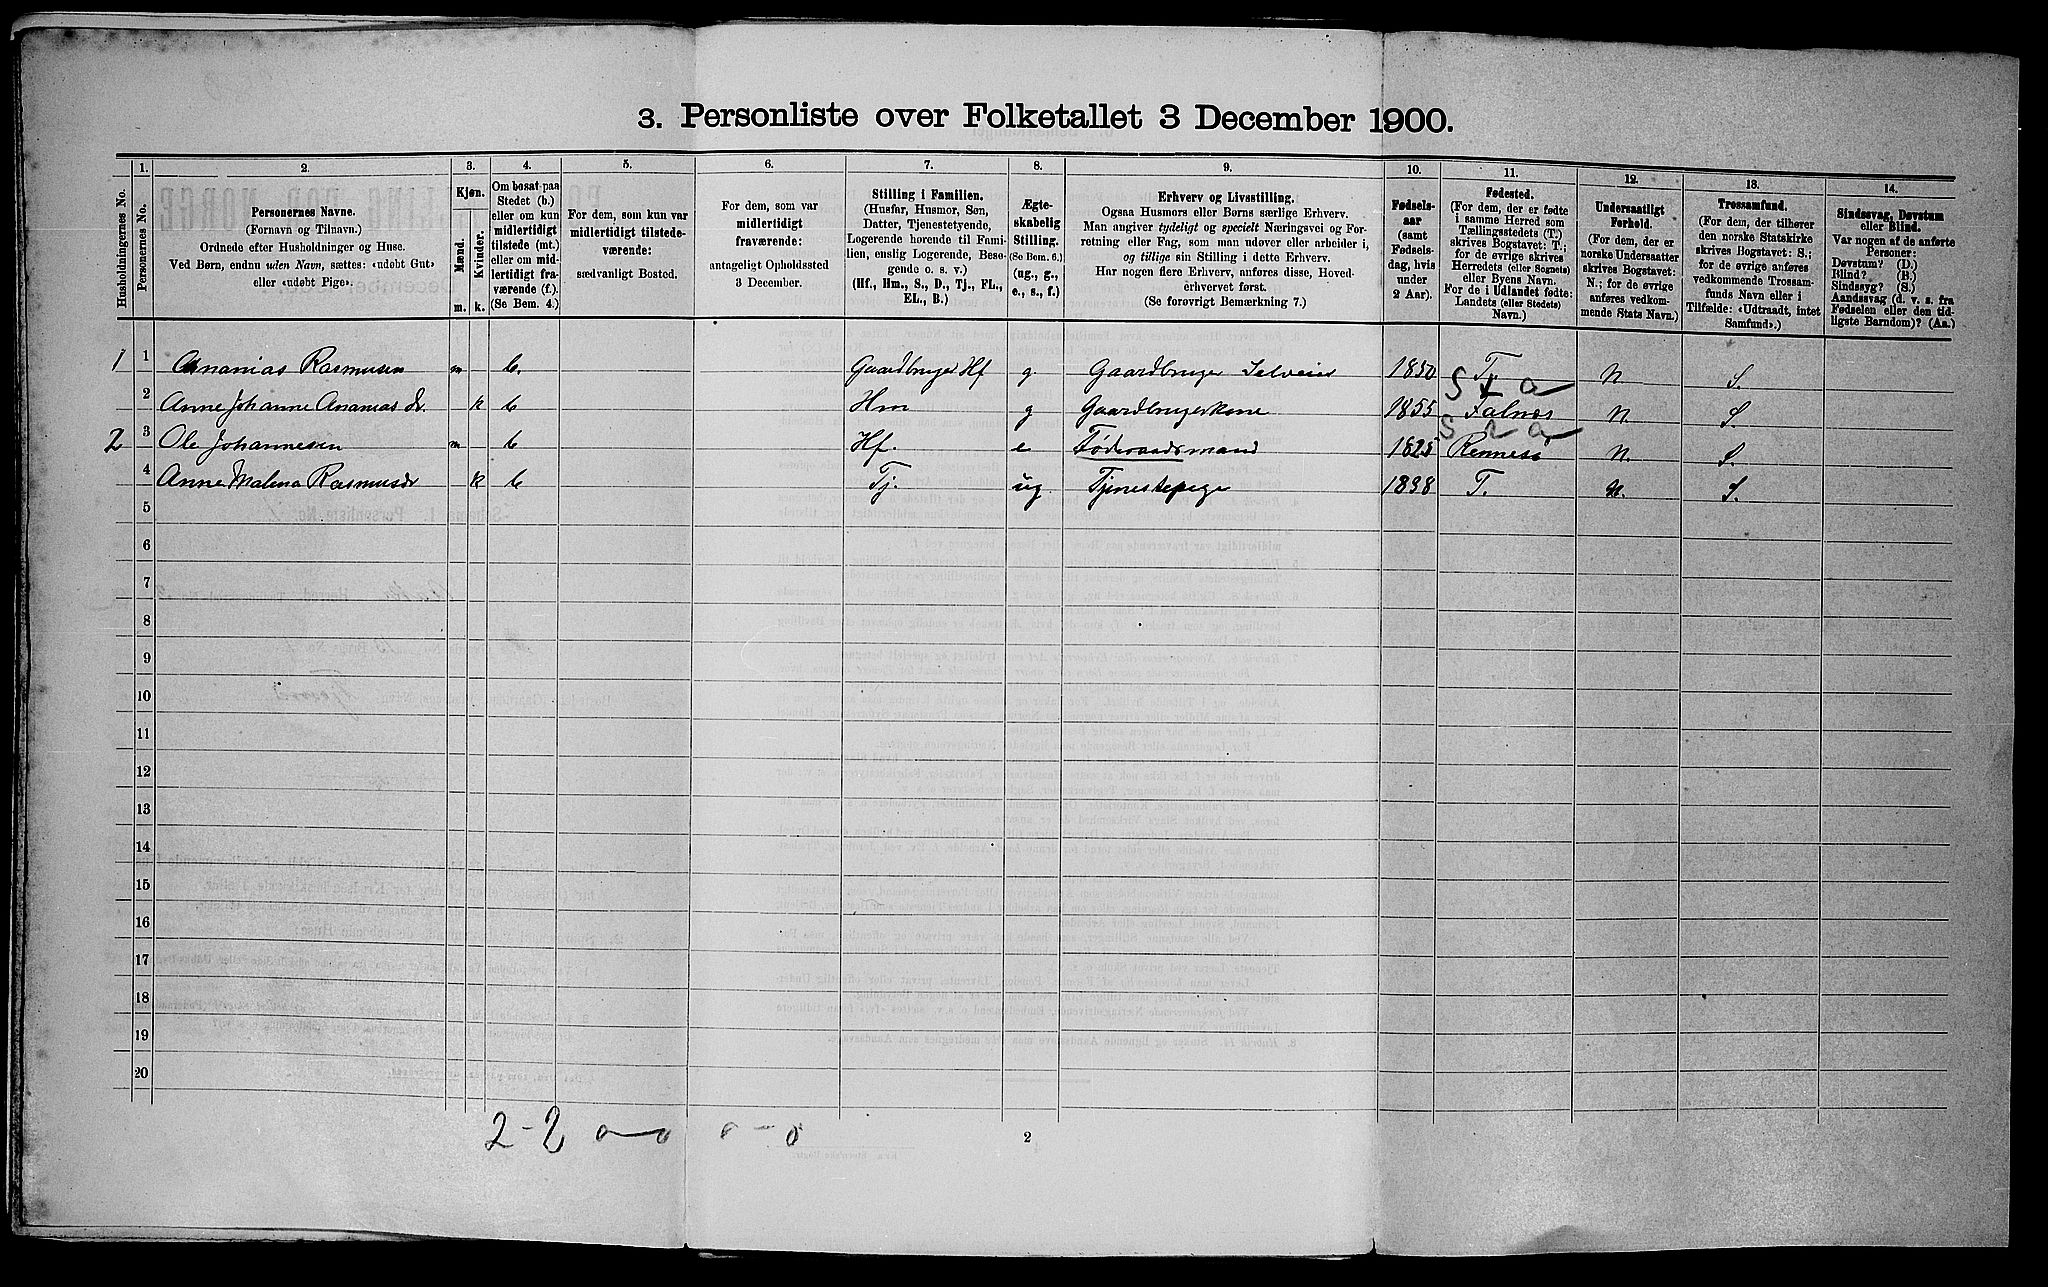 3. Personliste over Folketallet 3 December 1900.
Husholdningernes No.
1.
Personernes No.
2.
Personernes Navne.
(Fornavn og Tilnavn.)
Ordnede efter Husholdninger og Huse.
Ved Børn, endnu uden Navn, sættes: «udøbt Gut»
eller «udøbt Pige».
3.
Kjøn.
Mænd.
Kvinder.
m.
k.
4.
Om bosat paa
Stedet (b.)
eller om kun
midlertidigt
tilstede (mt.)
eller om mid-
lertidigt fra-
værende (f.).
(Se Bem. 4.)
5.
For dem, som kun var
midlertidigt tilstede-
værende:
sædvanligt Bosted.
6.
For dem, som var
midlertidigt
fraværende:
antageligt Opholdssted
3 December.
7.
Stilling i Familien.
(Husfar, Husmor, Søn,
Datter, Tjenestetyende,
Logerende hørende til Fami-
lien, enslig Logerende, Besø-
gende o. s. v.)
(Hf., Hm., S., D., Tj., FL.,
EL., B.)
8.
Ægte-
skabelig
Stilling.
(Se Bem. 6.)
(ug., g.,
e., s., f.)
9.
Erhverv og Livsstilling.
Ogsaa Husmors eller Børns særlige Erhverv.
Man angiver tydeligt og specielt Næringsvei og For-
retning eller Fag, som man udøver eller arbeider i,
og tillige sin Stilling i dette Erhverv.
Har nogen flere Erhverv, anføres disse, Hoved-
erhvervet først.
(Se forøvrigt Bemærkning 7.)
10.
Fødsels-
aar
(samt
Fødsels-
dag, hvis
under
2 Aar).
11.
Fødested.
(For dem, der er fødte
i samme Herred som
Tællingsstedets (T.)
skrives Bogstavet: T.;
for de øvrige skrives
Herredets (eller Sognets)
eller Byens Navn.
For de i Udlandet fødte:
Landets (eller Stedets)
Navn.)
12.
Undersaatligt
Forhold.
(For dem, der er
norske Undersaatter
skrives Bogstavet:
N.; for de øvrige
anføres vedkom-
mende Stats Navn.)
13.
Trossamfund.
(For dem, der tilhører
den norske Statskirke
skrives Bogstavet: S.;
for de øvrige anføres
vedkommende Trossam-
funds Navn eller i
Tilfælde: «Udtraadt, intet
Samfund».)
14.
Sindssvag, Døvstum
eller Blind.
Var nogen af de anførte
Personer:
Døvstum? (D.)
Blind? (B.)
Sindssyg? (S.)
Aandssvag (d. v. s. fra
Fødselen eller den tid-
ligste Barndom)? (Aa.)
1 1 Ananias Rasmusen m b. Gaardbruger Hf g. Gaardbruger Selveier 1850 T. N. S.
2 Anne Johanne Ananias dr. k b Hm g Gaardbrugerkone 1855 Falnæs N. S.
2 3 Ole Johannesen m b Hf. e Føderaadsmand 1825 Rennesö N. S.
4 Anne Malena Rasmusdr k b Tj. ug Tjenestepige 1838 T. N. S.
5
6
7
8
9
10
11
12
13
14
15
16
17
18
19
20
2-2 0-0 0-0
2